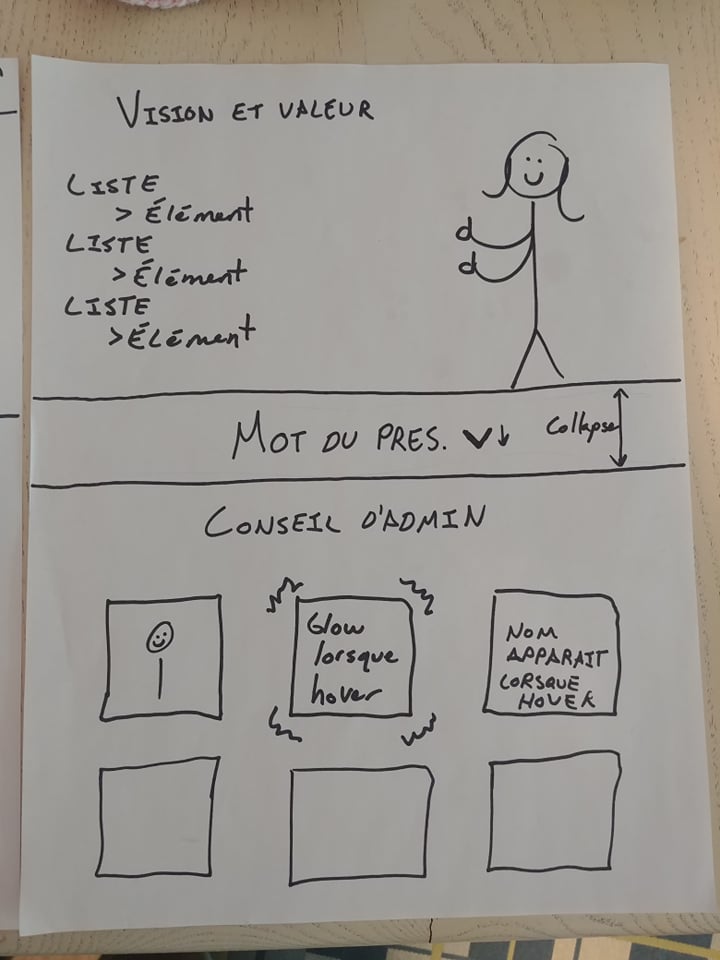 VISION ET VALEUR
LISTE
> Élément
LISTE
> Élément
LISTE
> Élément
MOT DU PRES.
Collapse
CONSEIL D'ADMIN
Glow
lorsque
hover
NOM
APPARAIT
LORSQUE
HOVER